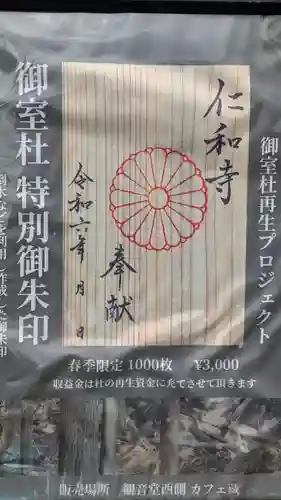 御室杜再生プロジェクト
仁和寺
奉献
令和六年 月 日
御室杜 特別御朱印
春季限定 1000枚 ¥3,000
収益金は杜の再生資金に充てさせて頂きます
販売場所 観音堂西側 カフェ蔵